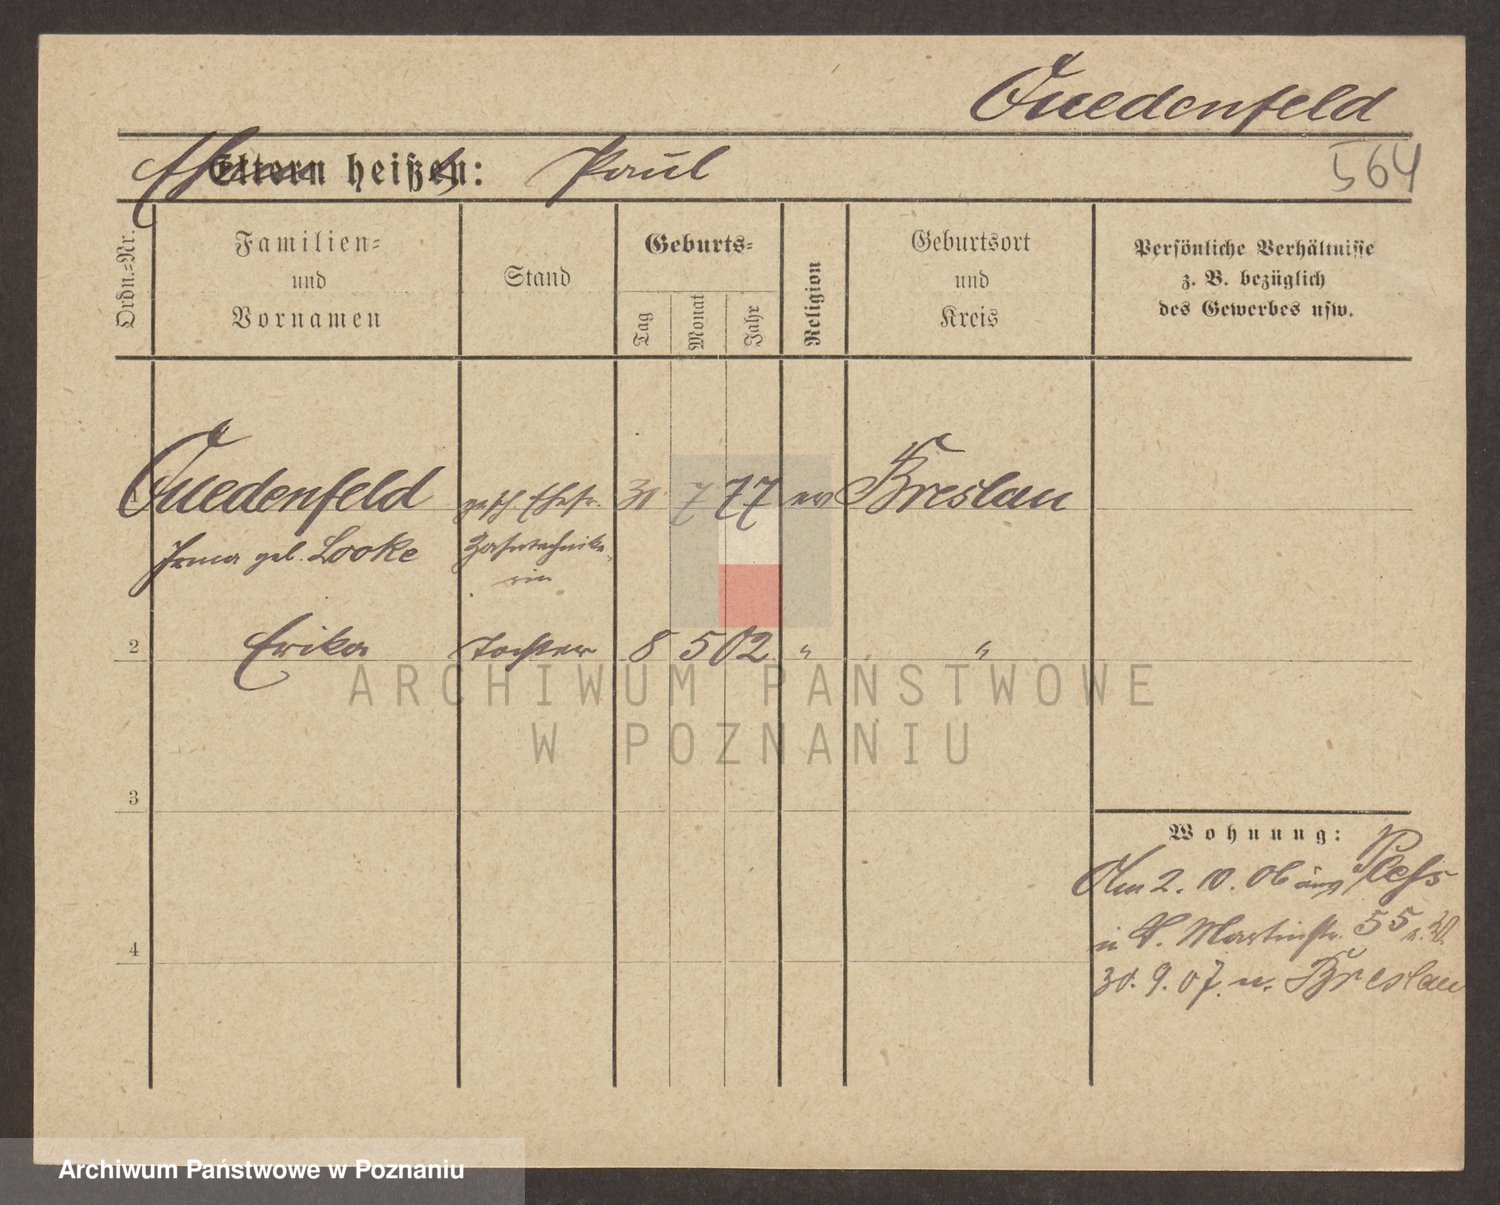 Quedenfeld
Eltern heißen: Paul
564
Ordn.=Nr.
Familien=
und
Vornamen
Stand
Geburts=
Tag
Monat
Jahr
Religion
Geburtsort
und
Kreis
Persönliche Verhältnisse
z. B. bezüglich
des Gewerbes usw.
Quedenfeld gesch. Ehefr. 31. 7 77 ev Breslau
Irma geb. Looke Zahntechnike
rin
2 Erika Tochter 8 5 02 " "
3
4
Wohnung:
Am 2. 10. 06 aus
in St. Martinstr. 55 b. W.
30. 9. 07. n. Breslau
ARCHIWUM PAŃSTWOWE
W POZNANIU
Archiwum Państwowe w Poznaniu